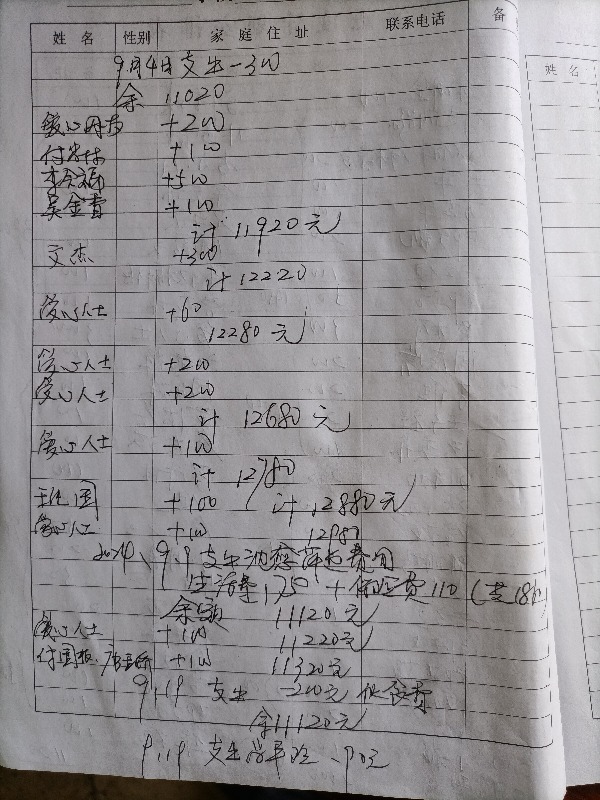 姓名 性别 家庭住址 联系电话 备
姓名
9月4日支出-300
余 11020
爱心网友 +200
+100
+500
吴金贵 +100
计 11920元
文杰 +300
计 12220
爱心人士 +60
12280元
爱心人士 +200
爱心人士 +200
计 12680元
爱心人士 +100
计 12780
国 +100 计 12880元
爱心人士 +100 1298
9.9支出 费用
生活费175 + 费110
余额 11120元
爱心人士 +100 11220元
付国 +100 11320元
9.19 支出 -200元 费
余11120元
9.19 支出 90元